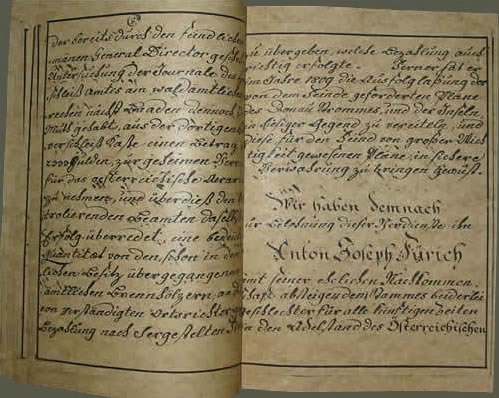 der bereits durch den feindlichen
General Director
Untersuchung der Journale des
amtes am, waldamtlichen
dennoch
Muth gehabt, aus der dortigen
verschleiß Kaße einen Betrag
2000 Gulden, zur geheimen
für das oesterreichische Aerar
zu nehmen, und überdieß den
trolierenden Beamten daselbst
Erfolg überredet, eine
Quantitæt von den, schon in den
lichen Besitz übergegangenen
ämtlichen Brennhölzern, an
von verständigten Ortsrichter
Bezahlung nach hergestelten
zu übergeben, welche Bezahlung auch
richtig erfolgte. Ferner hat er
im Jahre 1809 die Ausfolglaßung der
von dem Feinde geforderten Plane
des Donau Strommes, und der Inseln
in hiesiger Gegend zu vereiteln, und
diese, für den Feind von großer Wich
tigkeit gewesenen Plane, in sichere
Verwahrung zu bringen gewußt.
Wir haben demnach
zur Belohnung dieser Verdienste ihn
Anton Joseph Fürich
mit seiner ehelichen Nachkommen
schaft absteigenden Stammes beiderlei
Geschlechter für alle künftigen Zeiten
in den Adelstand des Österreichischen